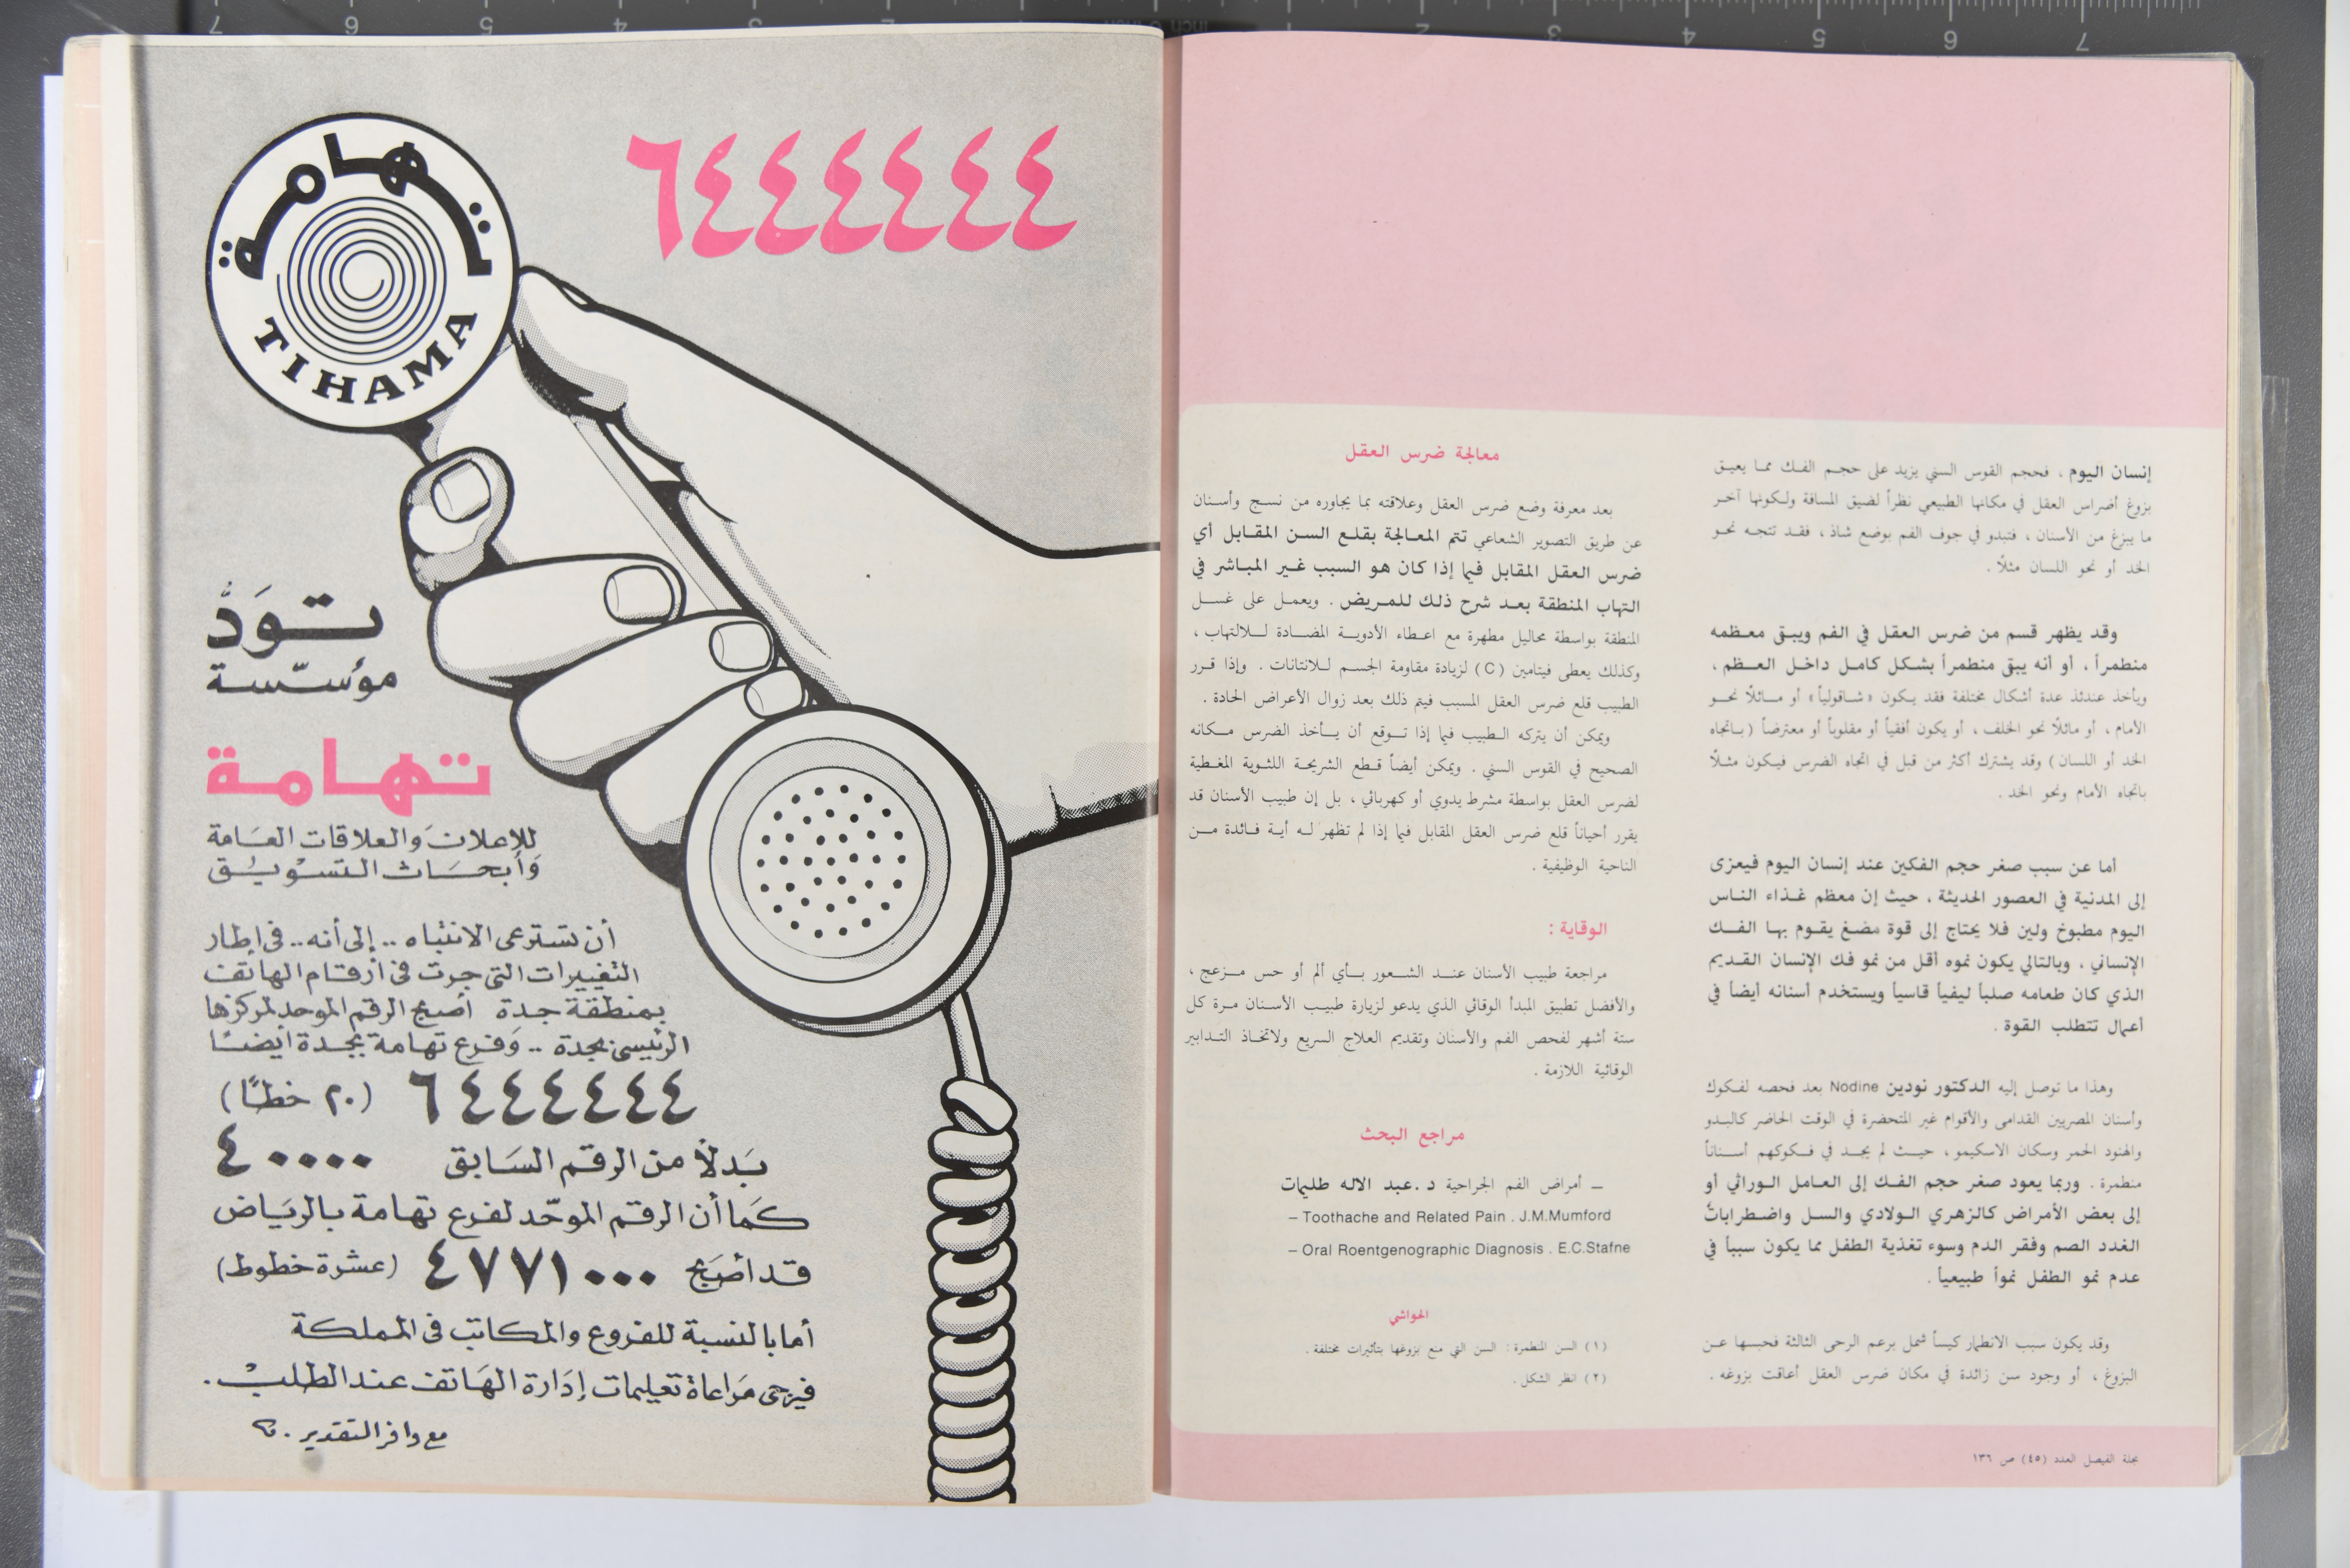 إنسان اليوم ، فحجم القوس السني يزيد على حجم الفك مما يعيق
بزوغ أضراس العقل في مكانها الطبيعي نظراً لضيق المسافة ولكونها آخر
ما يبزغ من الأسنان ، فتبدو في جوف الفم بوضع شاذ ، فقد تتجه نحو
الخد أو نحو اللسان مثلاً .
وقد يظهر قسم من ضرس العقل في الفم ويبقى معظمه
منطمراً ، أو أنه يبقى منطمراً بشكل كامل داخل العظم ،
ويأخذ عندئذ عدة أشكال مختلفة فقد يكون « شاقولياً » أو مائلاً نحو
الأمام ، أو مائلاً نحو الخلف ، أو يكون أفقياً أو مقلوباً أو معترضاً ( باتجاه
الخد أو اللسان ) وقد يشترك أكثر من قبل في اتجاه الضرس فيكون مثلاً
باتجاه الأمام ونحو الخد .
أما عن سبب صغر حجم الفكين عند إنسان اليوم فيعزى
إلى المدنية في العصور الحديثة ، حيث إن معظم غذاء الناس
اليوم مطبوخ ولين فلا يحتاج إلى قوة مضغ يقوم بها الفك
الإنساني ، وبالتالي يكون نموه أقل من نمو فك الإنسان القديم
الذي كان طعامه صلباً ليفياً قاسياً ويستخدم أسنانه أيضاً في
أعمال تتطلب القوة .
وهذا ما توصل إليه الدكتور نودين Nodine بعد فحصه لفكوك
وأسنان المصريين القدامى والأقوام غير المتحضرة في الوقت الحاضر كالبدو
والهنود الحمر وسكان الاسكيمو ، حيث لم يجد في فكوكهم أسناناً
منطمرة . وربما يعود صغر حجم الفك إلى العامل الوراثي أو
إلى بعض الأمراض كالزهري الولادي والسل واضطرابات
الغدد الصم وفقر الدم وسوء تغذية الطفل مما يكون سبباً في
عدم نمو الطفل نمواً طبيعياً .
وقد يكون سبب الانطمار كيساً شمل برعم الرحى الثالثة فحبسها عن
البزوغ ، أو وجود سن زائدة في مكان ضرس العقل أعاقت بزوغه .
مجلة الفيصل العدد (٤٥) ص ١٣٦
معالجة ضرس العقل
بعد معرفة وضع ضرس العقل وعلاقته بما يجاوره من نسج وأسنان
عن طريق التصوير الشعاعي تتم المعالجة بقلع السن المقابل أي
ضرس العقل المقابل فيما إذا كان هو السبب غير المباشر في
التهاب المنطقة بعد شرح ذلك للمريض . ويعمل على غسل
المنطقة بواسطة محاليل مطهرة مع اعطاء الأدوية المضادة للالتهاب ،
وكذلك يعطى فيتامين (C) لزيادة مقاومة الجسم للانتانات . وإذا قرر
الطبيب قلع ضرس العقل المسبب فيتم ذلك بعد زوال الأعراض الحادة .
ويمكن أن يتركه الطبيب فيما إذا توقع أن يأخذ الضرس مكانه
الصحيح في القوس السني . ويمكن أيضاً قطع الشريحة اللثوية المغطية
لضرس العقل بواسطة مشرط يدوي أو كهربائي ، بل إن طبيب الأسنان قد
يقرر أحياناً قلع ضرس العقل المقابل فيما إذا لم تظهر له أية فائدة من
الناحية الوظيفية .
الوقاية :
مراجعة طبيب الأسنان عند الشعور بأي ألم أو حس مزعج ،
والأفضل تطبيق المبدأ الوقائي الذي يدعو لزيارة طبيب الأسنان مرة كل
ستة أشهر لفحص الفم والأسنان وتقديم العلاج السريع ولاتخاذ التدابير
الوقائية اللازمة .
مراجع البحث
– أمراض الفم الجراحية د . عبد الاله طليمات
– Toothache and Related Pain . J.M.Mumford
– Oral Roentgenographic Diagnosis . E.C.Stafne
الحواشي
(١) السن المنطمرة : السن التي منع بزوغها بتأثيرات مختلفة .
(٢) انظر الشكل .
٦٤٤٤٤٤٤
تهامة
TIHAMA
تَوَدُّ
مؤسّسة
تهامة
للإعلان وَالعلاقات العَامة
وَأبحَاث التسْويْق
أن تسترعى الانتباه .. إلى أنه .. فى إطار
التغييرات التى جرت فى أرقام الهاتف
بمنطقة جدة أصبح الرقم الموحد لمركزها
الرئيسى بجدة .. وَفرع تهامة بجدة أيضًا
٦٤٤٤٤٤٤ (٢٠ خطًا)
بَدلًا من الرقم السَابق ٤٠٠٠٠
كَما أن الرقم الموحّد لفرع تهامة بالريَاض
قد أصَبح ٤٧٧١٠٠٠ (عشرة خطوط)
أما بالنسبة للفروع والمكاتب فى المملكة
فيرجى مَراعاة تعليمات إدَارة الهَاتف عند الطلبْ .
مع وافر التقدير .
7 6 5 4 3 2 1 inch 1 2 3 4 5 6 7